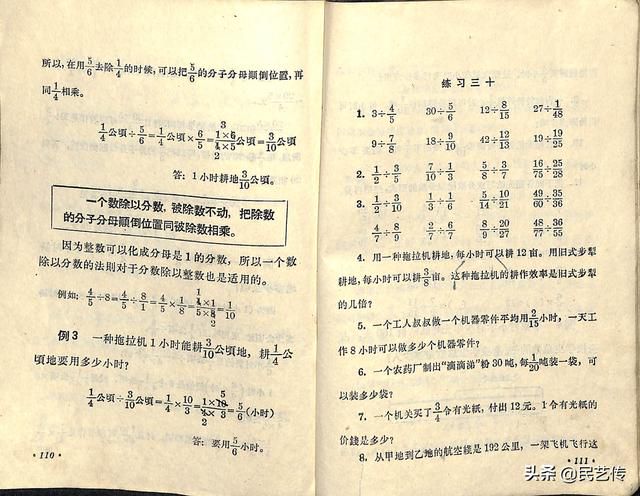 所以,在用5/6去除1/4的时候,可以把5/6的分子分母顚倒位置,再
同1/4相乘。
1/4公頃÷5/6=1/4公頃×6/5=1×6/4×5公頃=3/10公頃
答：1小时耕地3/10公頃。
一个数除以分数，被除数不动，把除数
的分子分母顚倒位置同被除数相乘。
因为整数可以化成分母是1的分数，所以一个数
除以分数的法则对于分数除以整数也是适用的。
例如：4/5÷8=4/5÷8/1=4/5×1/8=4×1/5×8=1/10
例3 一种拖拉机1小时能耕3/10公頃地，耕1/4公
頃地要用多少小时?
1/4公頃÷3/10公頃=1/4×10/3=1×10/4×3=5/6(小时)
答：要用5/6小时。
·110·
练习三十
1. 3÷4/5 30÷5/6 12÷8/15 27÷1/48
9÷7/8 18÷9/10 42÷12/13 19÷19/25
2. 1/2÷3/5 7/10÷1/3 5/8÷3/7 16/25÷25/28
3. 1/2÷3/10 1/3÷1/6 5/14÷10/21 49/60÷35/36
4/7÷8/9 2/7÷6/7 8/9÷20/27 48/77÷36/55
4. 用一种拖拉机耕地，每小时可以耕12亩。用旧式步犁
耕地，每小时可以耕3/8亩。这种拖拉机的耕作效率是旧式步犁
的几倍?
5. 一个工人叔叔做一个机器零件平均用2/15小时，一天工
作8小时可以做多少个机器零件?
6. 一个农药厂制出“滴滴涕”粉30吨，每1/20吨装一袋，可
以装多少袋?
7. 一个机关买了3/4令有光纸，付出12元。1令有光纸的
价錢是多少?
8. 从甲地到乙地的航空綫是192公里，一架飞机飞行这
·111·
头条 @民艺传